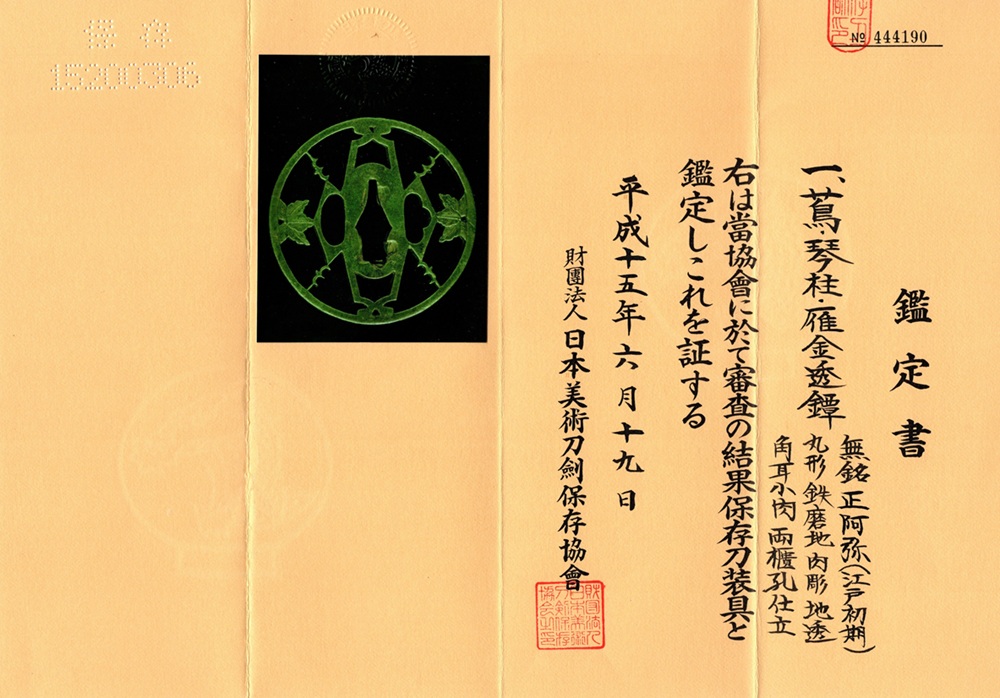 № 444190
鑑定書
一、蔦・琴柱・雁金透鐔
無銘 正阿弥(江戸初期)
丸形 鉄磨地 肉彫 地透
角耳小肉 両櫃孔仕立
右は當協會に於て審査の結果保存刀装具と
鑑定しこれを証する
平成十五年六月十九日
財團法人 日本美術刀劍保存協會
保存
15200306